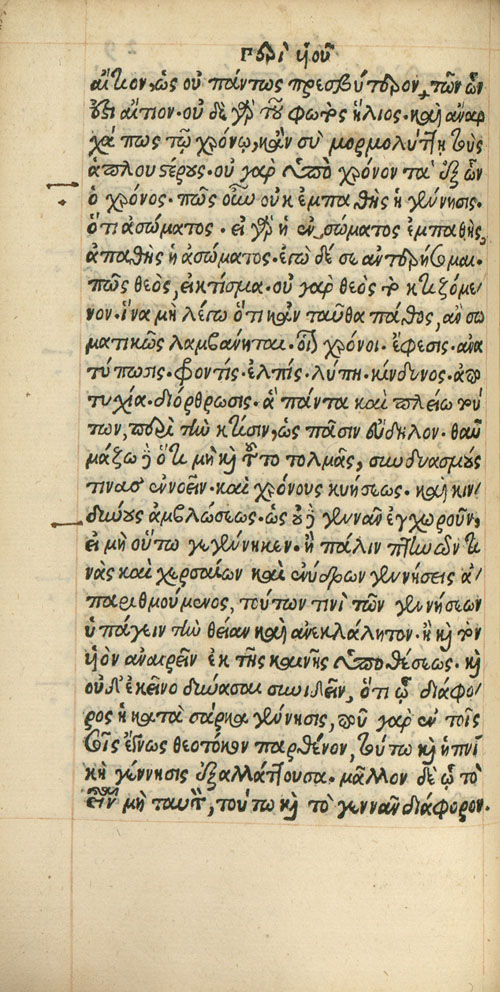 Περὶ υἱοῦ
αἴτιον, ὡς οὐ πάντως πρεσβύτερον, τῶν ὧν
ἐστι αἴτιον. οὐ δὲ γὰρ τοῦ φωτὸς ἥλιος. καὶ ἄναρ
χά πως τῷ χρόνῳ, κἂν σὺ μορμολύττῃ τοὺς
ἁπλουστέρους. οὐ γὰρ ὑπὸ χρόνον τὰ ἐξ ὧν
ὁ χρόνος. πῶς οὖν οὐκ ἐμπαθὴς ἡ γέννησις.
ὅτι ἀσώματος. εἰ γὰρ ἡ ἐνσώματος ἐμπαθὴς,
ἀπαθὴς ἡ ἀσώματος. ἐγὼ δέ σε ἀντερήσομαι.
πῶς θεὸς, εἰ κτίσμα. οὐ γὰρ θεὸς τὸ κτιζόμε
νον. ἵνα μὴ λέγω ὅτι κἂν ταῦθα πάθος, ἂν σω
ματικῶς λαμβάνηται. οἷον χρόνοι. ἔφεσις. ἀνα
τύπωσις. φροντίς. ἐλπίς. λύπη. κίνδυνος. ἀπο
τυχία. διόρθρωσις. ἃ πάντα καὶ πλείω τού
των, περὶ τὴν κτίσιν, ὡς πᾶσιν εὔδηλον. θαυ
μάζω δὲ ὅτι μὴ καὶ τοῦτο τολμᾶς, συνδυασμούς
τινας ἐννοεῖν. καὶ χρόνους κυήσεως. καὶ κιν
δύνους ἀμβλώσεως. ὡς οὐδὲ γεννᾶν ἐγχωροῦν,
εἰ μὴ οὕτω γεγέννηκεν. ἢ πάλιν πτηνῶν τι
νὰς καὶ χερσαίων καὶ ἐνύδρων γεννήσεις ἀ
παριθμούμενος, τούτων τινὶ τῶν γεννήσεων
ὑπάγειν τὴν θείαν καὶ ἀνεκλάλητον. ἢ καὶ τὸν
υἱὸν ἀναιρεῖν ἐκ τῆς καινῆς ὑποθέσεως. καὶ
οὐδ' ἐκεῖνο δύνασαι συνιδεῖν, ὅτι ᾧ διάφο
ρος ἡ κατὰ σάρκα γέννησις, ποῦ γὰρ ἐν τοῖς
σοῖς ἔγνως θεοτόκον παρθένον, τούτω καὶ ἡ πνευματι
κὴ γέννησις ἐξαλλάττουσα. μᾶλλον δὲ ᾧ τὸ
εἶναι μὴ ταυτὸν, τούτω καὶ τὸ γεννᾶν διάφορον.